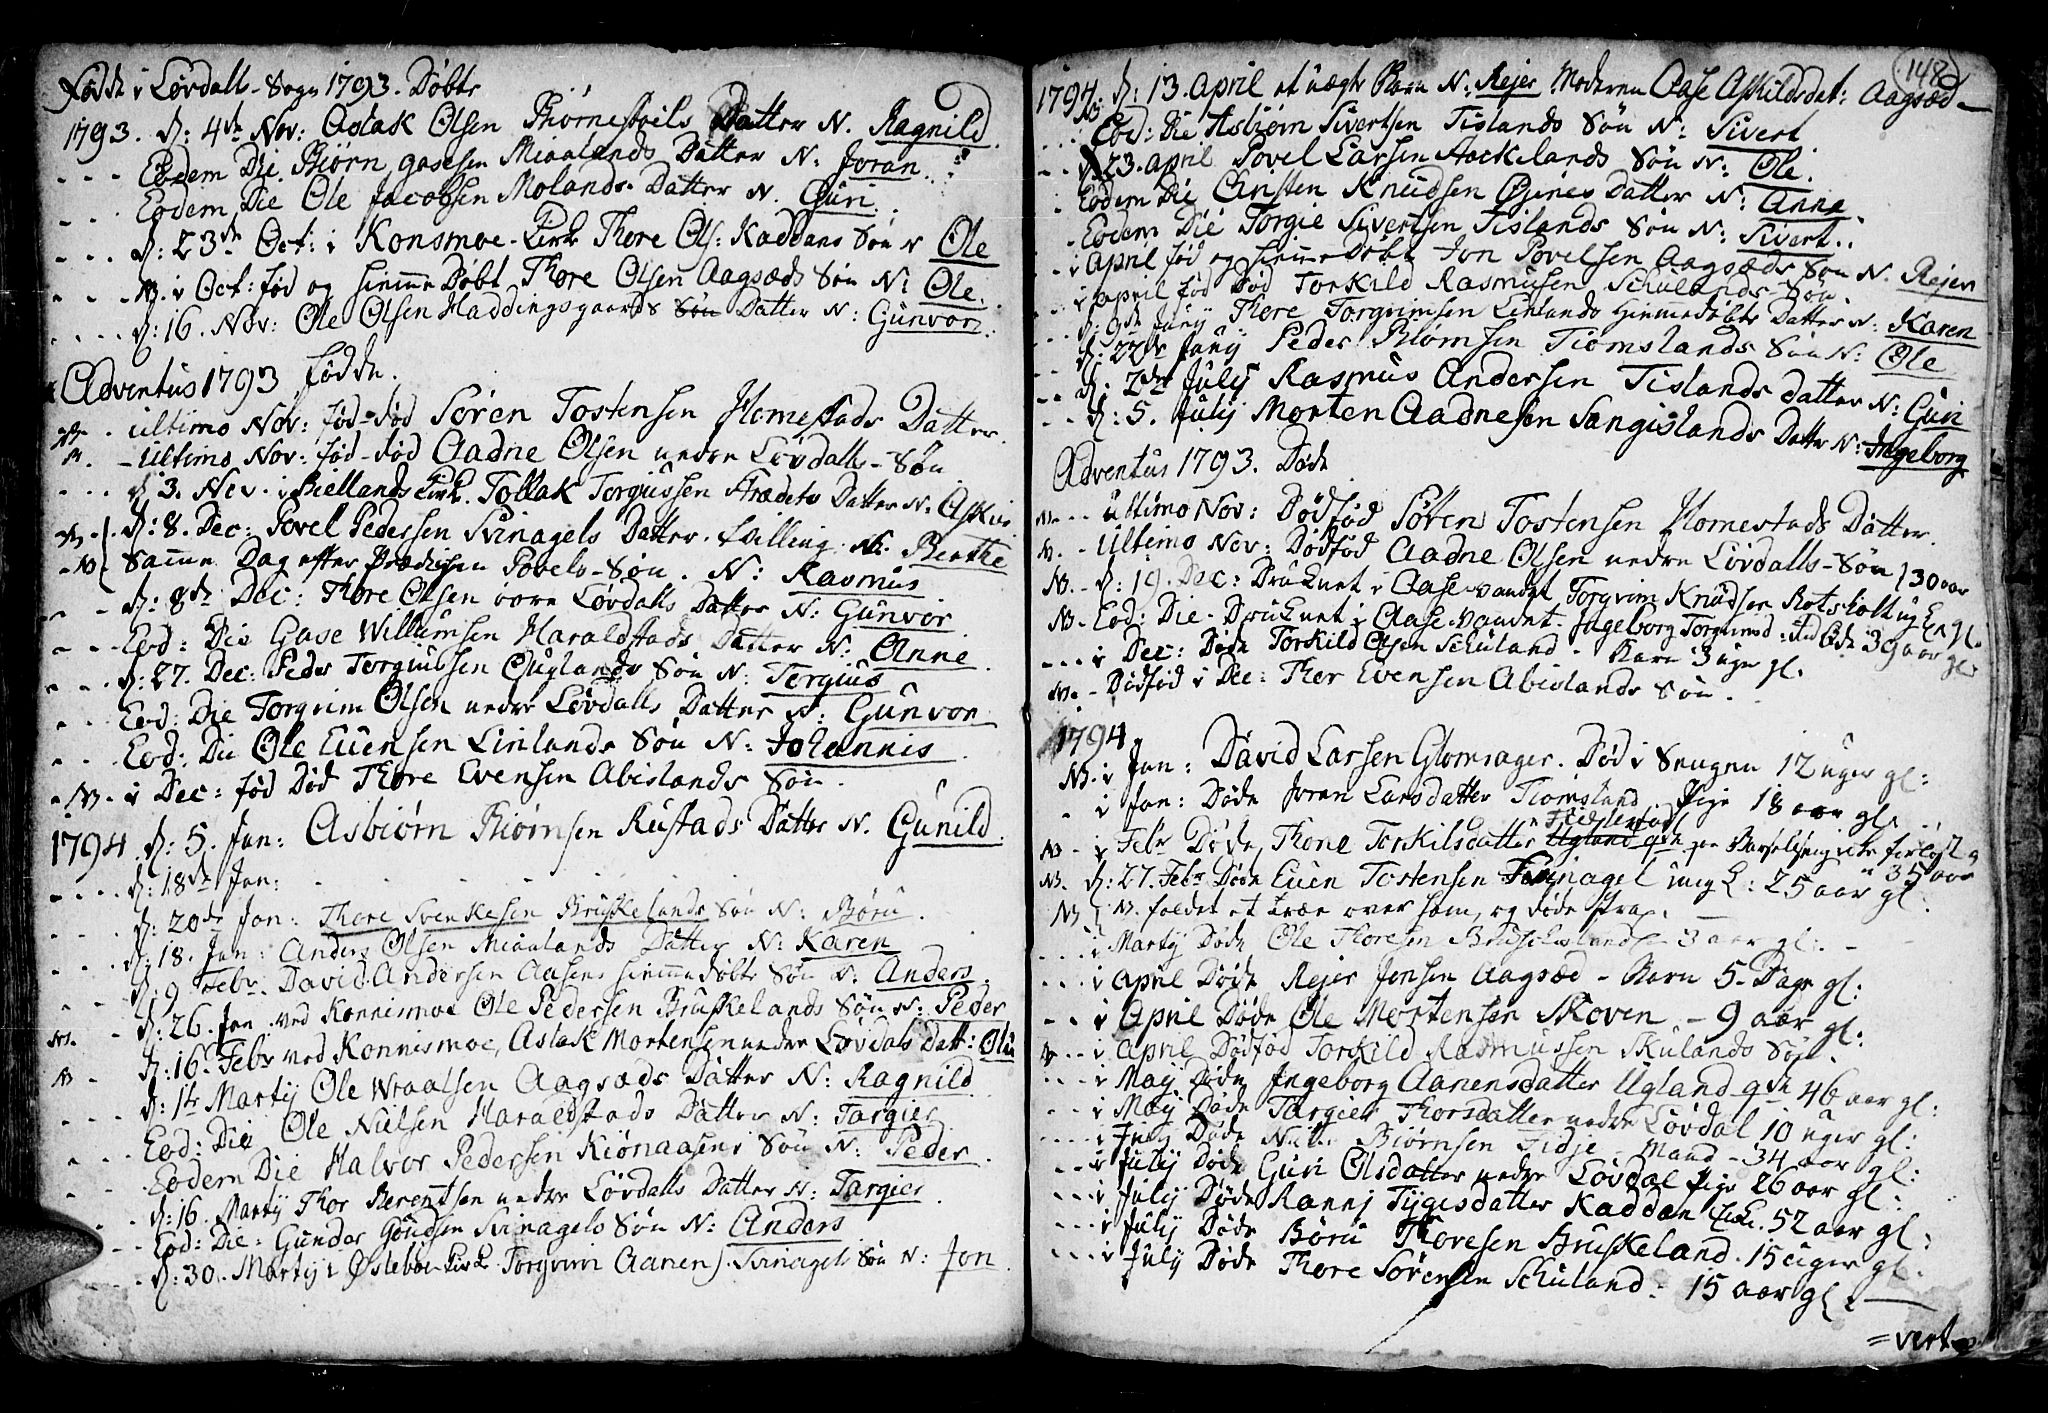 Fødde i Løvdalls-Sogn 1793. Døbte
1793. d: 4de Nov: Aslak Olsen Datter N. Ragnild
Eodem Die Biørn gasesen Miaalands Datter N: Joran
Eodem Die Ole Jacobsen Molands Datter N. Guri
d: 23de Oct: i Konsmoe-Kirk Thore Ols: Kaddans Søn N Ole
NB. i Oct: fød og hiemmeDøbt Thore Olsen Aagsæds Søn N: Ole.
d: 16. Nov: Ole Olsen Haddingsgaards Søn Datter N: Gunvor
Adventus 1793 fødde.
ultimo Nov: fød-fød Søren Tostensen Homestads Datter
ultimo Nov: fød-fød Aadne Olsen nedre Løvdalls-Søn
d 3. Nov. i Biellands Kirk. Tollak Torgiussen Strædets Datter N:
d: 8. Dec: Povel Pedersen Svinagels Datter. Tvilling N: Berthe
Samme Dag efter Prædicken Povels-Søn. N: Rasmus
d: 8de Dec: Thore Olsen øvre Løvdalls Datter N: Gunvor
Eod: Die Gase Willumsen Haraldstads Datter N: Anne
d: 27. Dec: Peder Torgiussen Øuglands Søn N: Torgius
Eod: Die Torgrim Olsen nedre Løvdalls Datter N: Gunvor
Eod: Die Ole Evensen Linlands Søn N: Johannis
NB. i Dec: fød Død Thore Evensen Abislands Søn.
1794. d: 5. Jan: Asbiørn Biørnsen Rustads Datter N. Gunild
d: 18de Jan:
d: 20de Jan: Thore Svenkesen Bruskelands Søn N: Børu
d: 18. Jan: Anders Olsen Miaalands Datter N: Karen
d: 9 Febr. David Andersen Aasens hiemmedøbte Søn N: Anders
d: 26. Jan ved Konnismoe Ole Pedersen Bruskelands Søn N: Peder
d: 16. Febr ved Konnismoe, Aslak Mortensen nedre Løvdals Datt:
d: 1te Martij Ole Wraalsen Aagsæds Datter N: Ragnild
Eod: Die Ole Nielsen Haraldstads Datter N: Targier
Eodem Die Halvor Pedersen Kiønaasens Søn N: Peder
d: 16. Martij Thor Berentsen nedre Løvdalls Datter N: Targier
Eod: Die: Gunder Goudsen Svinagels Søn N: Anders
d: 30. Martij i Øslebøe-Kirk Torgrim Aanens. Svinagels Søn N: Jon
148
1794. d: 13. April et uægte Barn N: Rejer. Moderen Aase Askildsdat: Aagsæd
Eod: Die Asbiørn Sivertsen Tislands Søn N: Sivert
d. 23. april Povel Larsen Søn N: Ole.
Eodem Die Christen Knudsen Datter N: Anne
Eodem Die Torgie Sivertsen Tislands Søn N: Sivert.
i April fød og hiemmeDøbt Jon Povelsen Aagsæds Søn N. Rejer
i april fød Død Torkild Rasmusen Schulands Søn.
d: 9de Junij Thore Torgrimsen Linlands Hiemmedøbte Datter N: Karen
d: 22de Junij Peder Biørnsen Tiomslands Søn N: Ole
d: 2den Julij Rasmus Andersen Tislands Datter N: Guri
d: 5. Julij Morten Aadnesen Sangislands Datter N: Ingeborg
Adventus 1793. Døde
ultimo Nov: Dødfød Søren Tostensen Homestads Datter.
ultimo Nov: Dødfød Aadne Olsen nedre Løvdalls-Søn
NB. d: 19. Dec: Druknet i Aase-vandet Torgrim Knudsen 30 aar
NB. Eod: Die Druknet i Aase-vandet. Ingeborg Torgrimsd: 39 aar gl:
i Dec: Døde Torkild Olsen Schuland - Barn 3 uger gl.
NB. Dødfød i Dec: Thor Evensen Abislands Søn.
1794.
NB. i Jan: David Larsen Glomsager. Død i Sengen 12 uger gl:
i Jan: Døde Joran Larsdatter Tiomsland Pige 18 aar gl.
NB. i Febr Døde Thone Torkilsdatter Ugland 35 aar
NB. d: 27. Febr Døde Even Tostensen Svinagel ungk: 25 aar gl:
NB. faldet et træe over ham, og døde strax.
i Martij Døde Ole Thoresen 3 aar gl:
i April Døde Rejer Jonsen Aagsæd - Barn 5 Dage gl:
i April Døde Ole Mortensen Skoven - 9 aar gl:
i April Dødfød Torkild Rasmussen Skulands Søn.
i Maij Døde Ingeborg Aanensdatter Ugland 46 aar gl:
i Maij Døde Targier Thorsdatter nedre Løvdal 10 uger gl:
i Julij Døde Biørnsen Lidje - Mand - 34 aar gl:
i Julij Døde Guri Olsdatter nedre Løvdal Pige 26 aar gl:
i Julij Døde Rannj Tygesdatter Kaddan Enke. 52 aar gl:
i Julij Døde Børu Thoresen Bruskeland. 15 uger gl:
i Julij Døde Thore Sørensen Schuland: 15 aar gl:
=vert